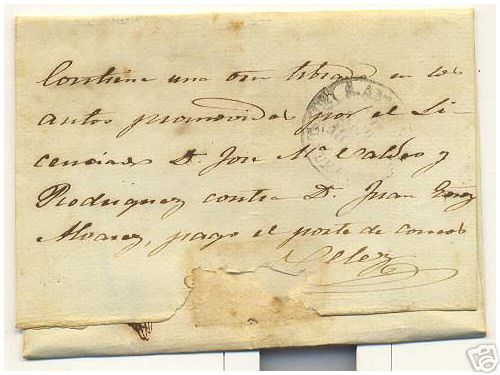 Contiene una orn librada en los
autos promovidos por el Li-
cenciado D. José Ma Valdes y
Rodriguez contra D. Juan
Alvarez, pago el porte de correos
Velez